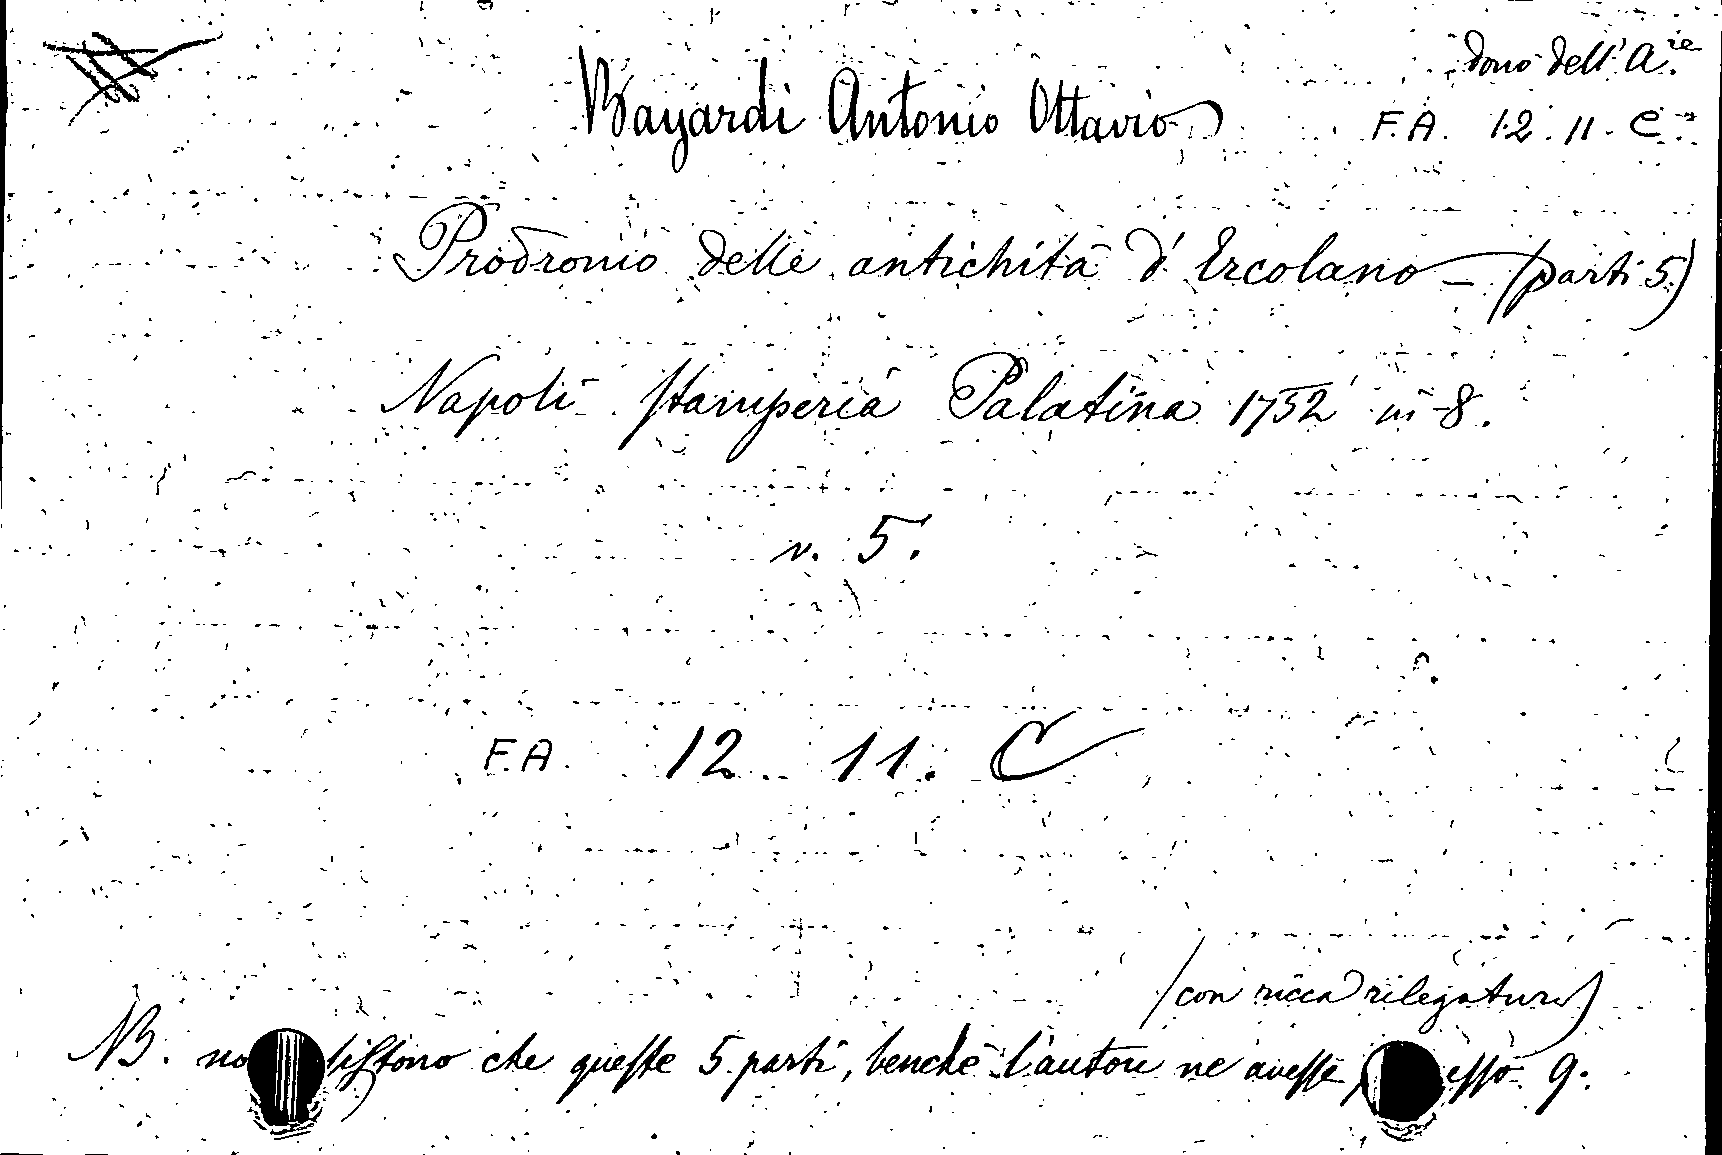 dono dell'A.ie
Bayardi Antonio Ottavio
F.A. 12. 11. C
Prodromo delle antichità d'Ercolano - (parti 5)
Napoli Stamperia Palatina 1752 in-8.
v. 5.
F.A. 12. 11. C
(con ricca rilegatura)
NB. no sistono che queste 5 parti, benchè l'autore ne avesse esso 9.